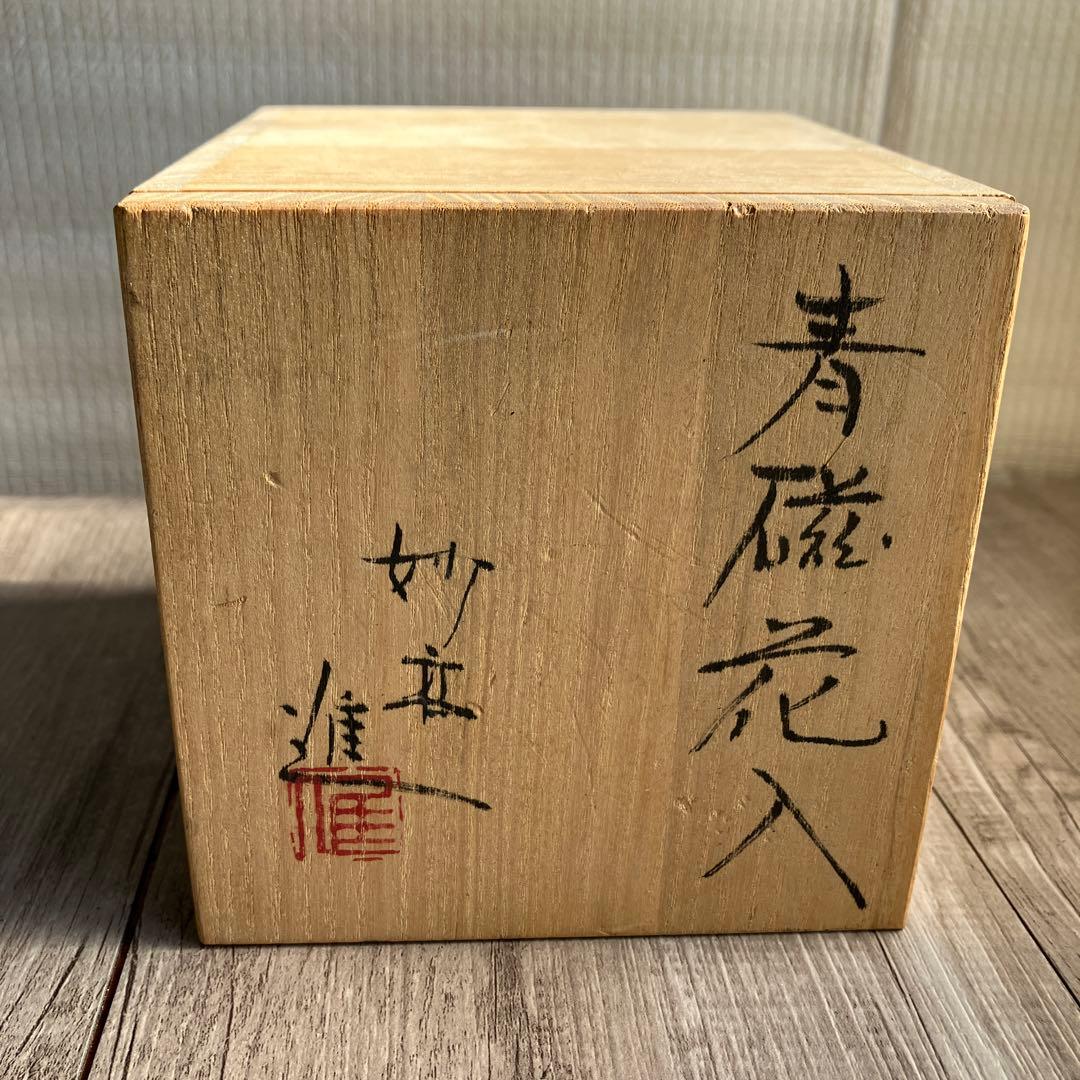 青磁花入
妙高
進